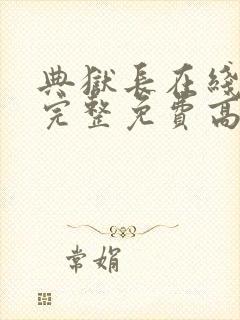 典獄長在綫
完整免費高
常娟